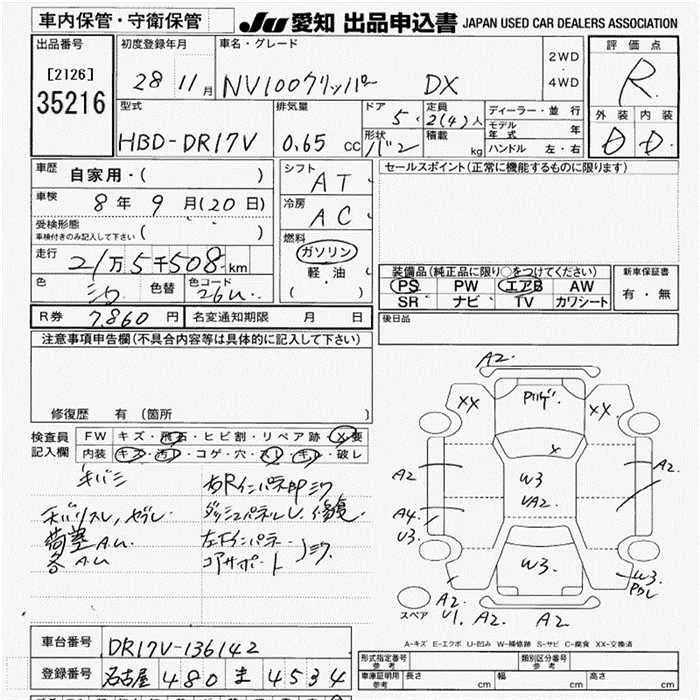 車内保管・守衛保管
JU 愛知 出品申込書 JAPAN USED CAR DEALERS ASSOCIATION
出品番号
[2126]
35216
初度登録年月
28 11月
車名・グレード
NV100クリッパー DX
2WD
・
4WD
評価点
R
外装 内装
D D
型式
HBD-DR17V
排気量
0.65 cc
ドア
5
形状
バン
定員
2(4)人
積載
kg
ディーラー・並行
モデル年式 年
ハンドル 左・右
車歴
自家用・( )
車検
8年 9月(20日)
受検形態
車検付きのみ記入して下さい ( )
走行
21万5千508km
色
シロ
色替
色コード
26U
シフト
AT
冷房
AC
燃料
ガソリン
軽・油
( )
セールスポイント(正常に機能するものに限ります)
装備品(純正品に限り○をつけてください)
PS PW エアB AW
SR ナビ TV カワシート
新車保証書
有・無
R券 7,860円
名変通知期限 月 日
後日品
注意事項申告欄(不具合内容等は具体的に記入して下さい)
修復歴 有 (箇所 )
検査員記入欄
FW キズ・飛石・ヒビ割・リペア跡・X要
内装 キズ・汚レ・コゲ・穴・スレ・キレ・破レ
A2
XX XX
A2 A2
W3
UA2
A4
U3
W3
W3
A2
U1 A2 A2
スペア
A-キズ E-エクボ U-凹み W-補修跡 S-サビ C-腐食 XX-交換済
車台番号 DR17V-136142
登録番号 名古屋 480 ま 4534
形式指定番号 参考
類別区分番号 参考
車庫証明用 参考 長さ cm 幅 cm 高さ cm